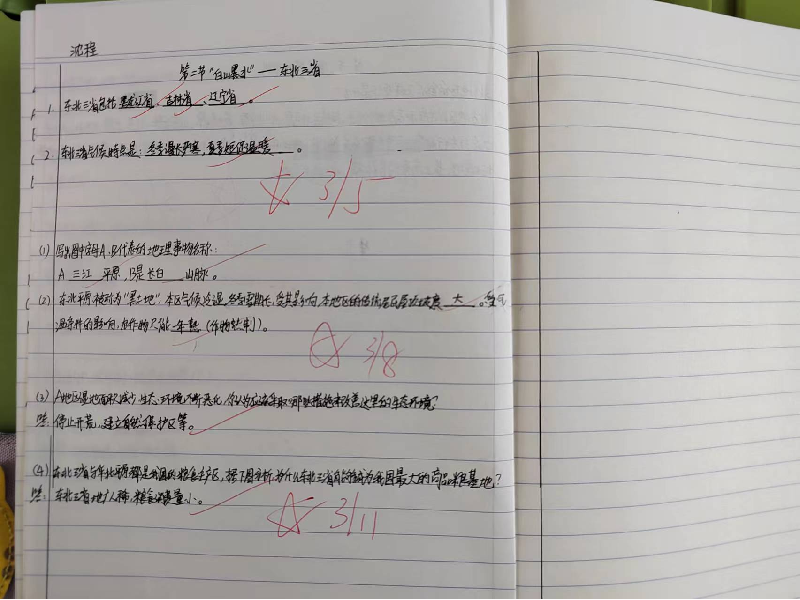 沈程
第二节"白山黑水"——东北三省
1. 东北三省包括黑龙江省、吉林省、辽宁省。
2. 东北三省气候特点是:冬季漫长严寒,夏季短促温暖。
3/5
(1) 写出图中字母A、B代表的地理事物名称:
A 三江 平原,B是长白 山脉。
(2) 东北平原被称为"黑土地",本区气候冷湿,冬季漫长,受其影响,本地区的传统民居墙体厚度 大 。受气
温条件的影响,农作物只能一年一熟(作物熟制)。
3/8
(3) A地区湿地面积减少,生态环境不断恶化,你认为应该采取哪些措施来改善这里的生态环境?
答:停止开荒,建立自然保护区等。
(4) 东北三省与华北平原都是我国的粮食主产区,据下图分析,为什么东北三省有能够成为我国最大的商品粮基地?
答:东北三省地广人稀,粮食消费量小。
3/11